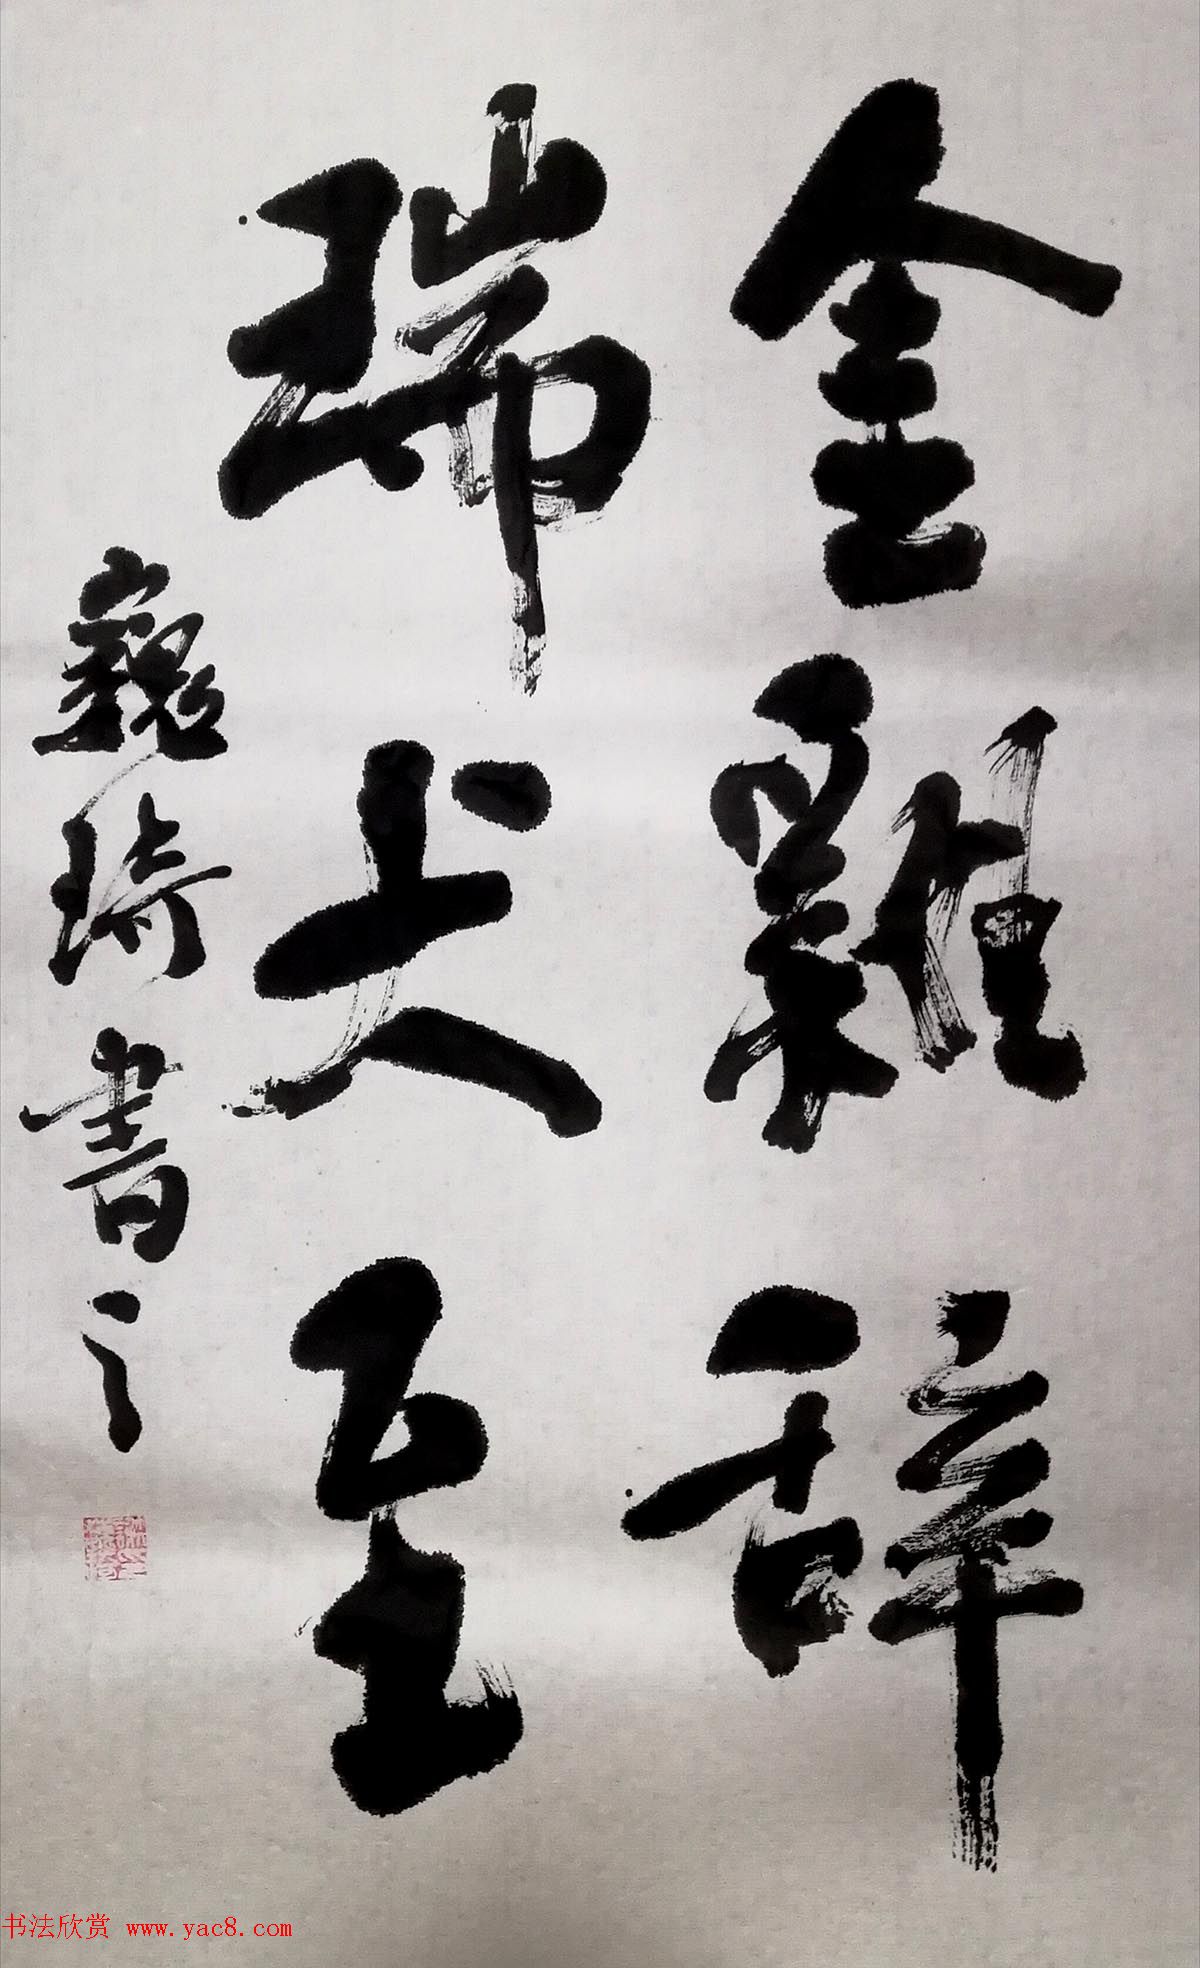 金雞辞
瑞犬至
巍琦書之
书法欣赏 www.yac8.com